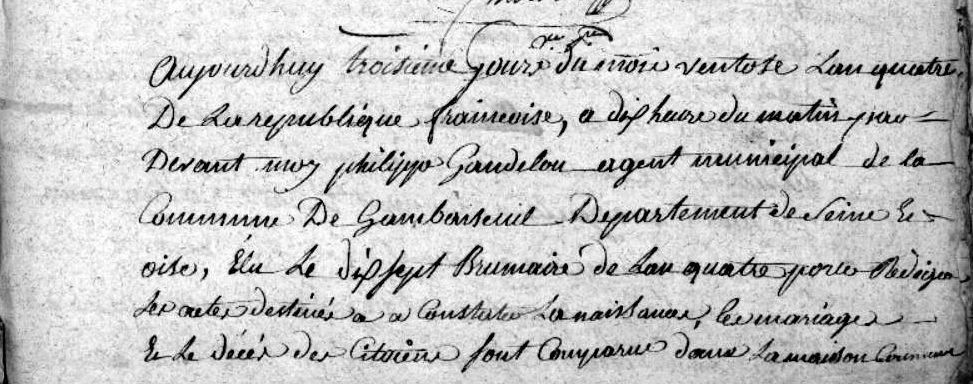 aujourdhuy troisieme jours du mois ventose Lan quatre
De La republique francoise, a dix heure du matin par
Devant moy philippe Gaudelou agent municipal de la
Commune De Gambaiseuil Departement de Seine Et
oise, Élu Le dix sept Brumaire de Lan quatre pour Rediger
Les actes destinés a a Constater La naissances, les mariages
Et Le décés des Citoiens sont Comparue dans La maison Commune